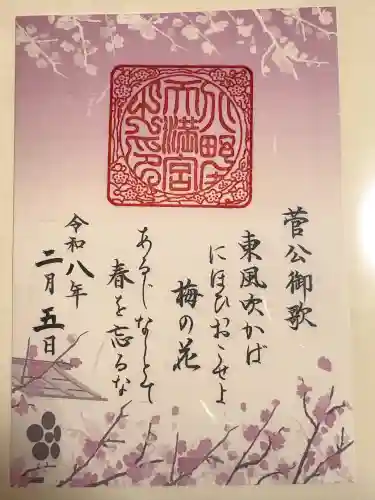 菅公御歌
東風吹かば
にほひおこせよ
梅の花
あるじなしとて
春を忘るな
令和八年
二月五日
北野天満宮